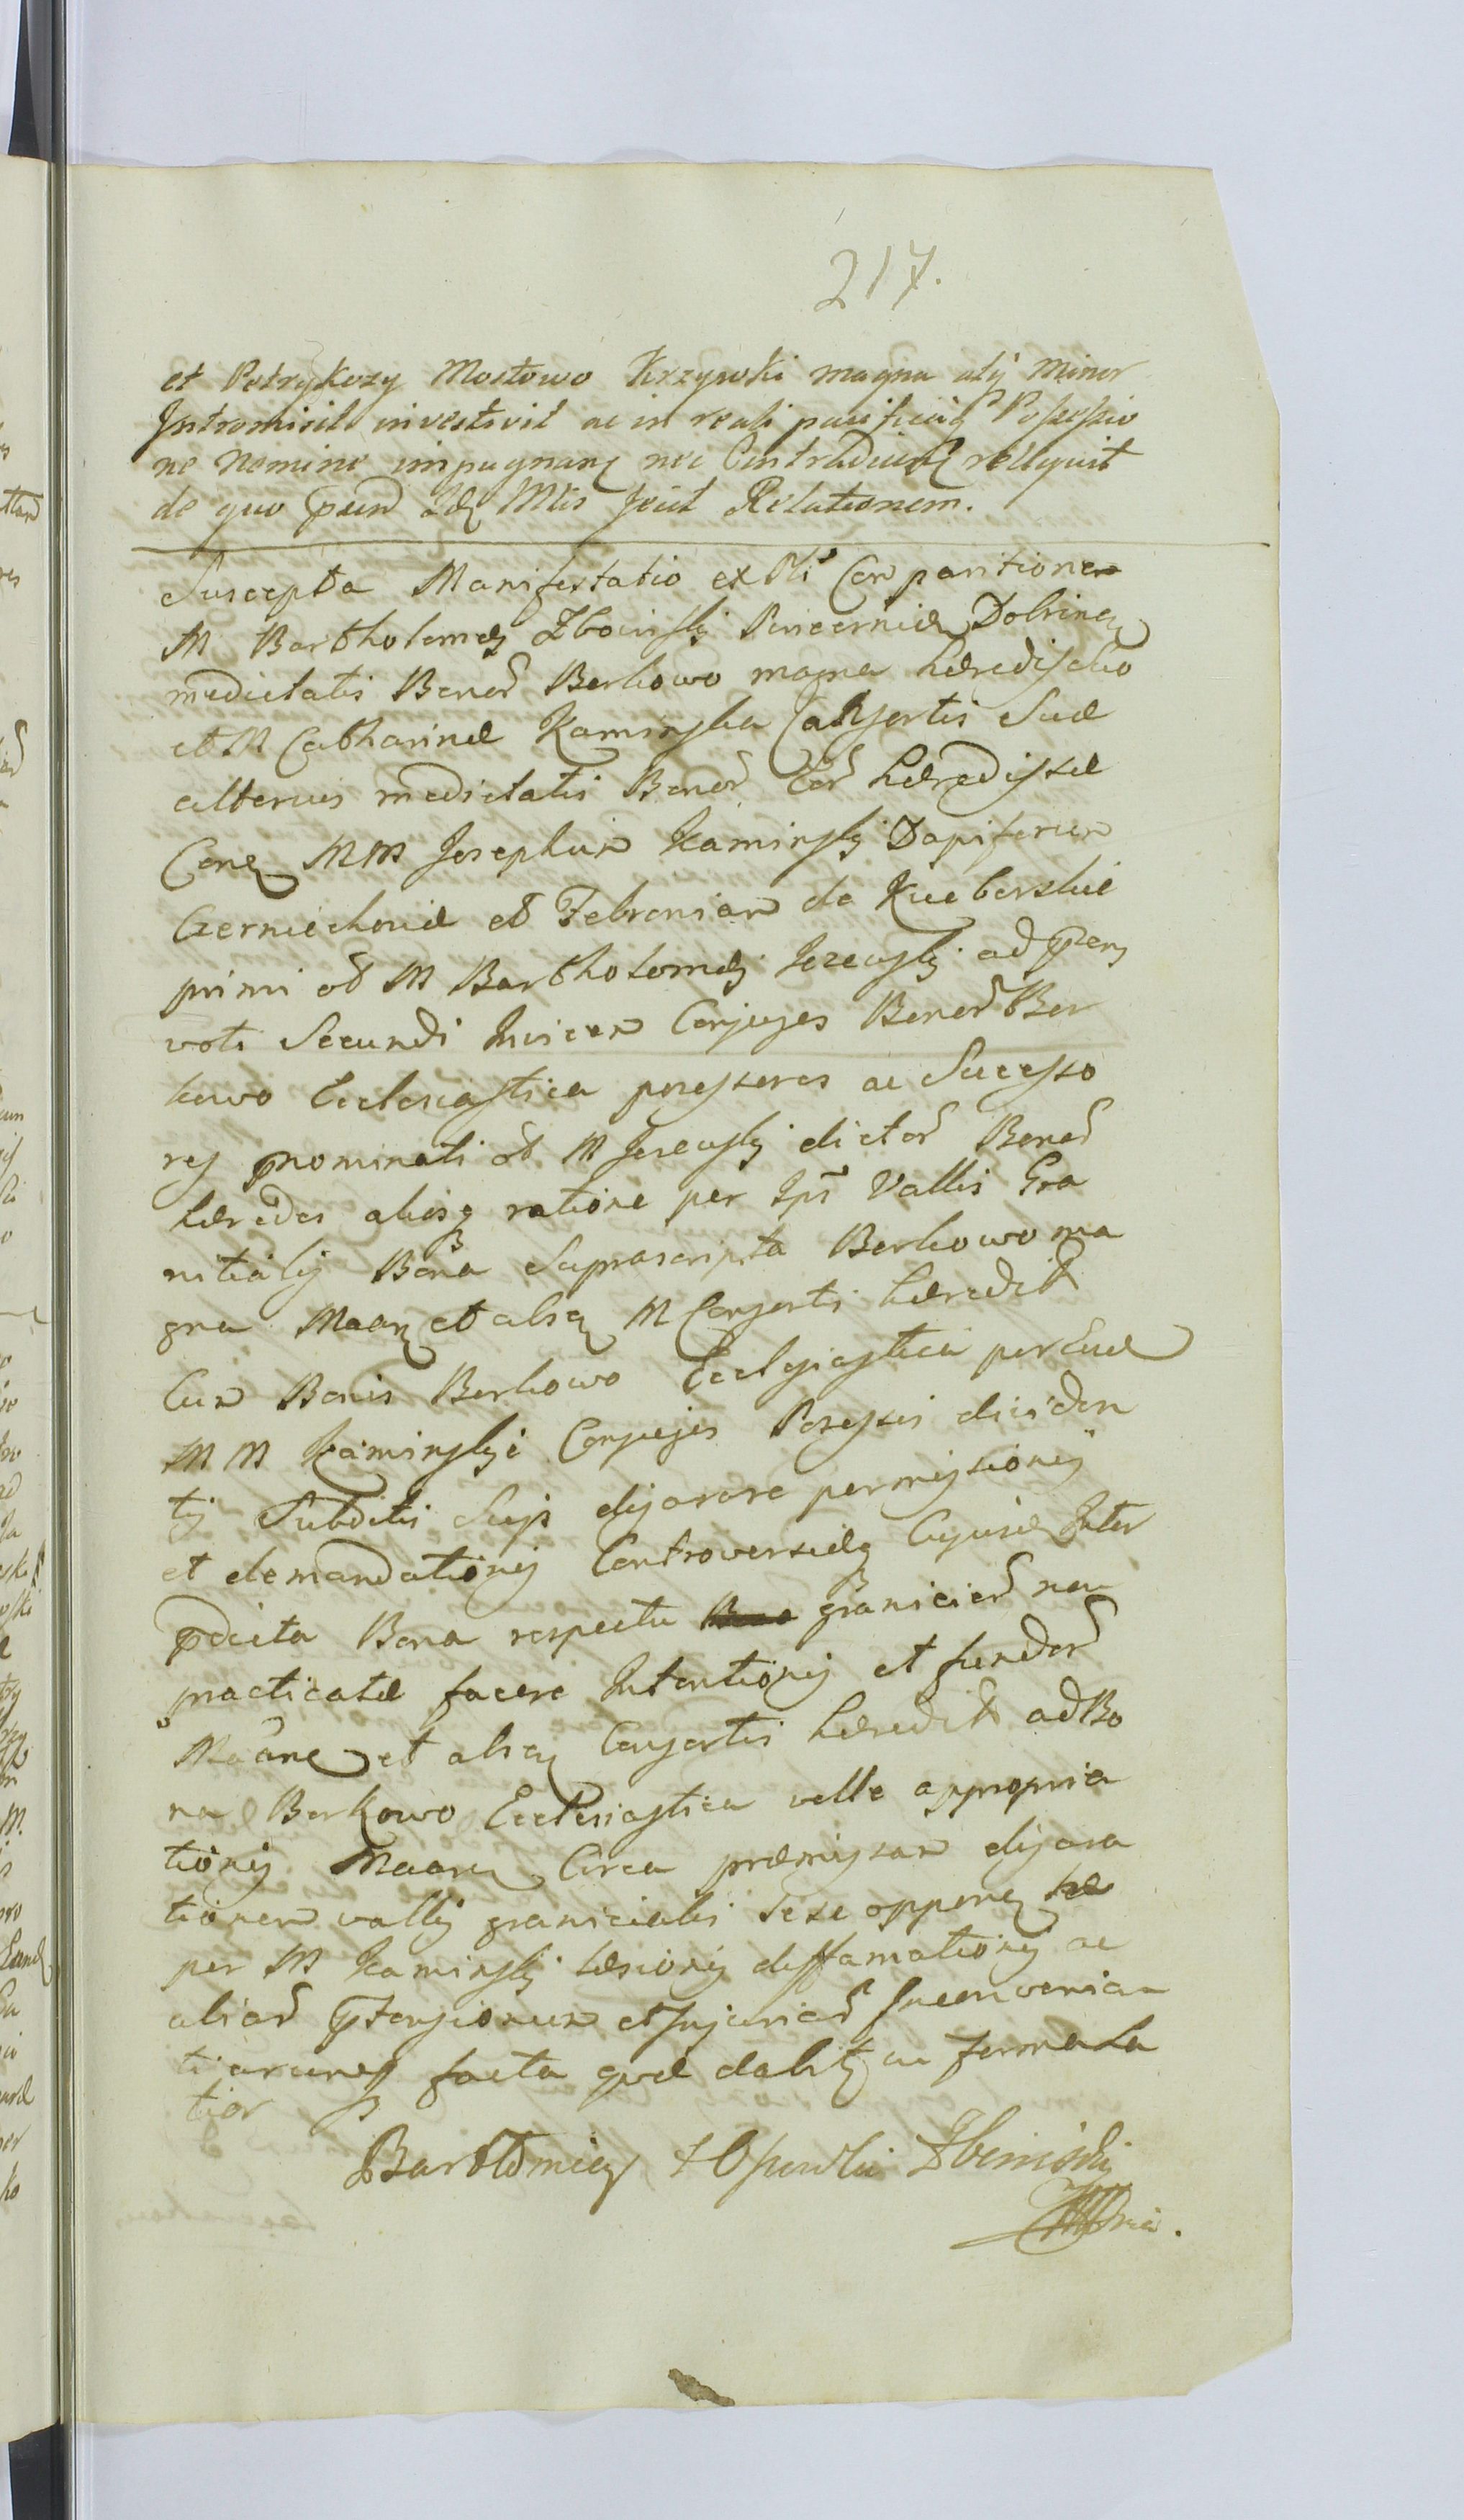 217.
et Petrykozy Mostowo Krzywki magna atq Minor
Intromisit investivit ac in reali pacificaq Possessio
ne Nemine impugnanq nec Contradicenq reliquit
de quo pnm Idq Mtis fecit Relationem.
Suscepta Manifestatio ex Oli Comparitione
M Bartholomej Zboinskj Pincernidæ Dobrinen
medietatis Bonor Borkowo magna hæredis acto
et M Catharinæ Kaminska Consortis Suæ
alterius medietatis Bonor Eor hæredissæ
Conq MM Josephum Kaminskj Dapiferum
Czerniechoviæ et Febroniam de
primi et M Bartholomæj Jezewskj ad pns
voti Secundi Invicem Conjuges Bonor Bor
kowo Ecclesiastica possessores ac Successo
res pnominati et M Jezewskj dictor Bonor
hæredes aliosq ratione per Ips Vallis Gra
nicialis Bona Suprascripta Borkowo ma
gna Maanq et alsq M Consortis hæredit
Cum Bonis Borkowo Ecclesiastica per Eue
MM Kaminskje Conjuges Possessis dividen
tis Subditis Suis disarare permissionis
et demandationis Controversiæq Cujusvis Inter
pdicta Bona respectu granicier non
practicatæ facere Intentionis et fundor
Maane et alsq Consortis hæredit ad Bo
na Borkowo Ecclesiastica velle appropria
tionis Maanq Circa præmissam disara
tionem vallis granicialis sese opponen
per M Kaminskj læsionis diffamationis ac
aliar ptensionum et Injuriar Inconvenien
tiarumq facta quæ dabitq ac formala
tior
Bartłomiey Zboinski